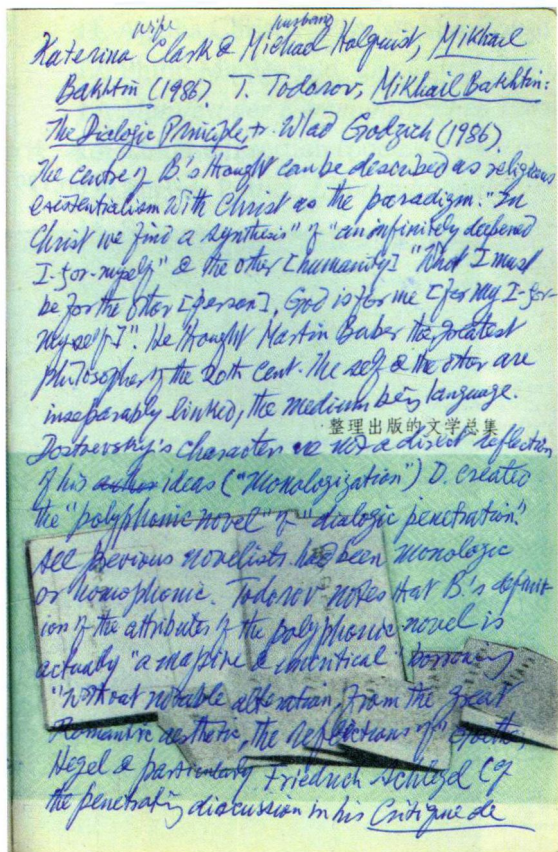 wife husband
Katerina Clark & Michael Holquist, Mikhail
Bakhtin (1986), T. Todorov, Mikhail Bakhtin:
The Dialogic Principle, tr. Wlad Godzich (1986).
The centre of B.'s thought can be described as religious
existentialism with Christ as the paradigm. "In
Christ we find a synthesis" of "an infinitely deepened
I-for-myself" & the other [humanity] "What I must
be for the other [person], God is for me [for my I-for-
myself]". He thought Martin Buber the greatest
philosopher of the 20th cent. The self & the other are
inseparably linked, the medium being language.
整理出版的文学总集
Dostoevsky's characters are not a direct reflection
of his ideas ("Monologization") D. created
the "polyphonic novel" of "dialogic penetration".
All previous novelists had been monologic
or homophonic. Todorov notes that B.'s definit-
ion of the attributes of the polyphonic novel is
actually "a massive & uncritical" borrowing
"without notable alteration, from the great
Romantic aesthetic, the reflections of" Goethe,
Hegel & particularly Friedrich Schlegel Cf
the penetrating discussion in his Critique de